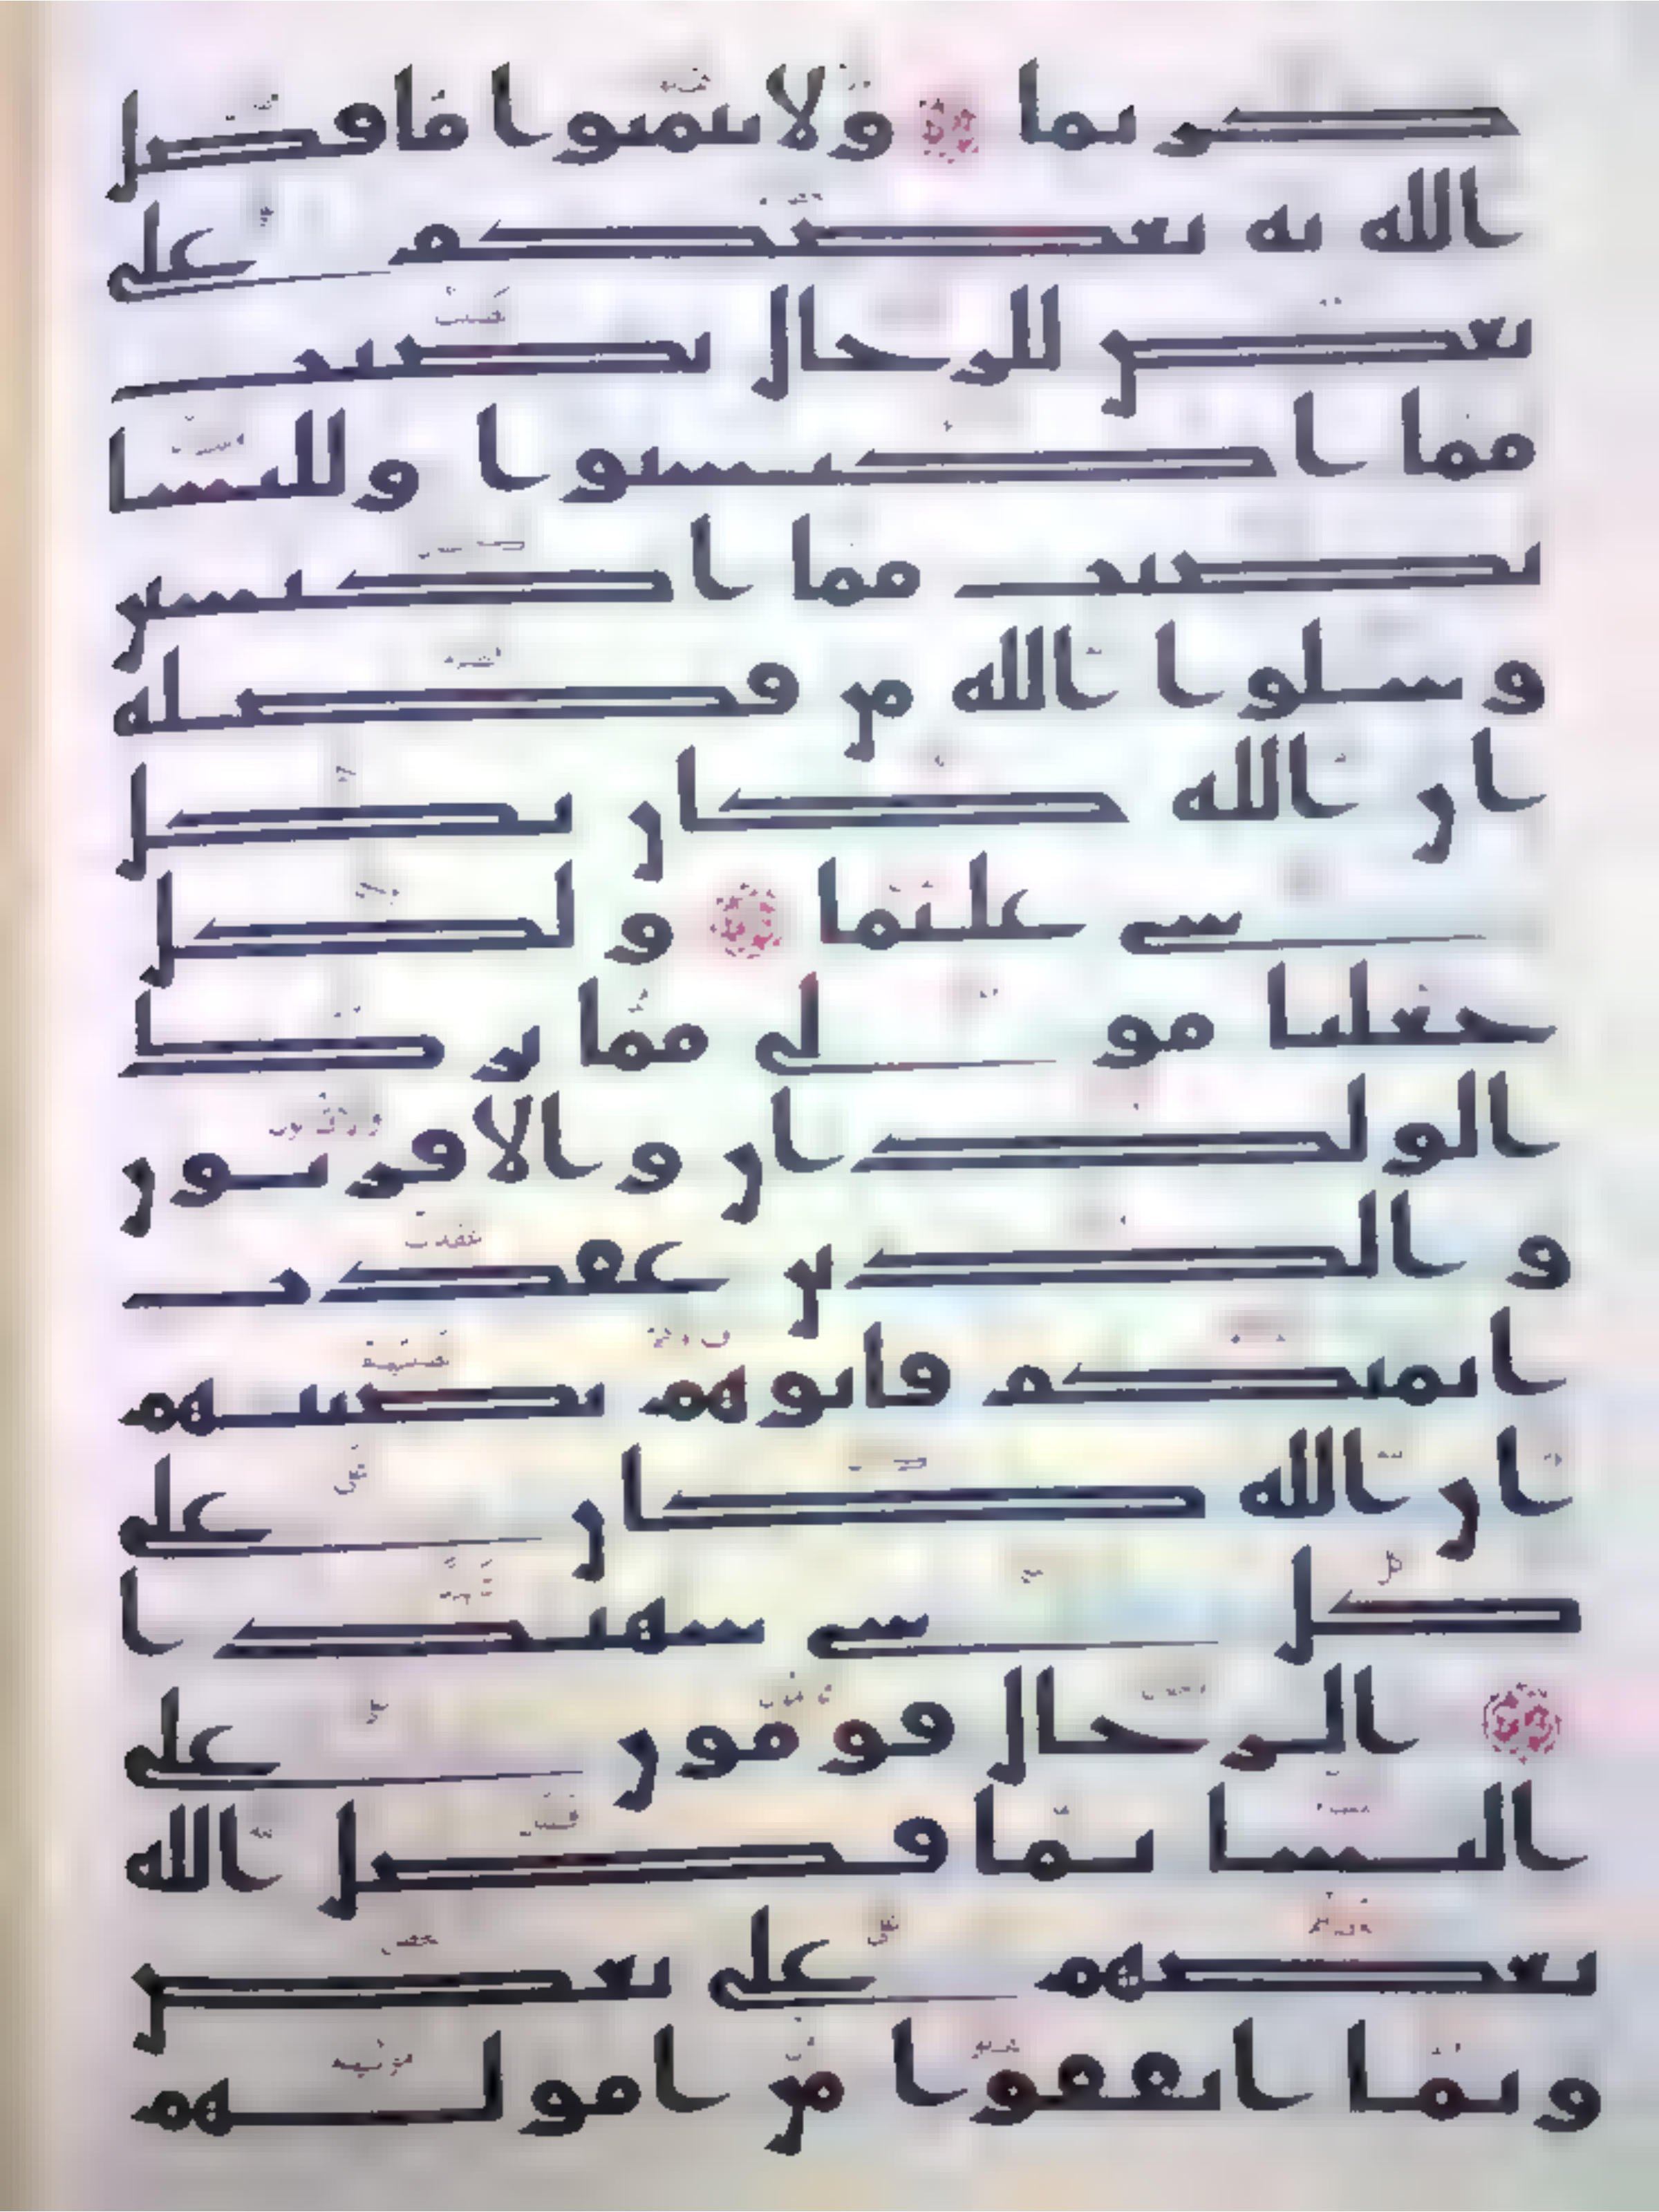 كريما ولا تتمنوا ما فضل
الله به بعضكم على
بعض للرجال نصيب
مما اكتسبوا وللنسا
نصيب مما اكتسبن
وسلوا الله من فضله
ان الله كان بكل
شي عليما ولكل
جعلنا مولى مما ترك
الولدان والاقربون
والذين عقدت
ايمنكم فاتوهم نصيبهم
ان الله كان على
كل شي شهيدا
الرجال قومون على
النسا بما فضل الله
بعضهم على بعض
وبما انفقوا من امولهم